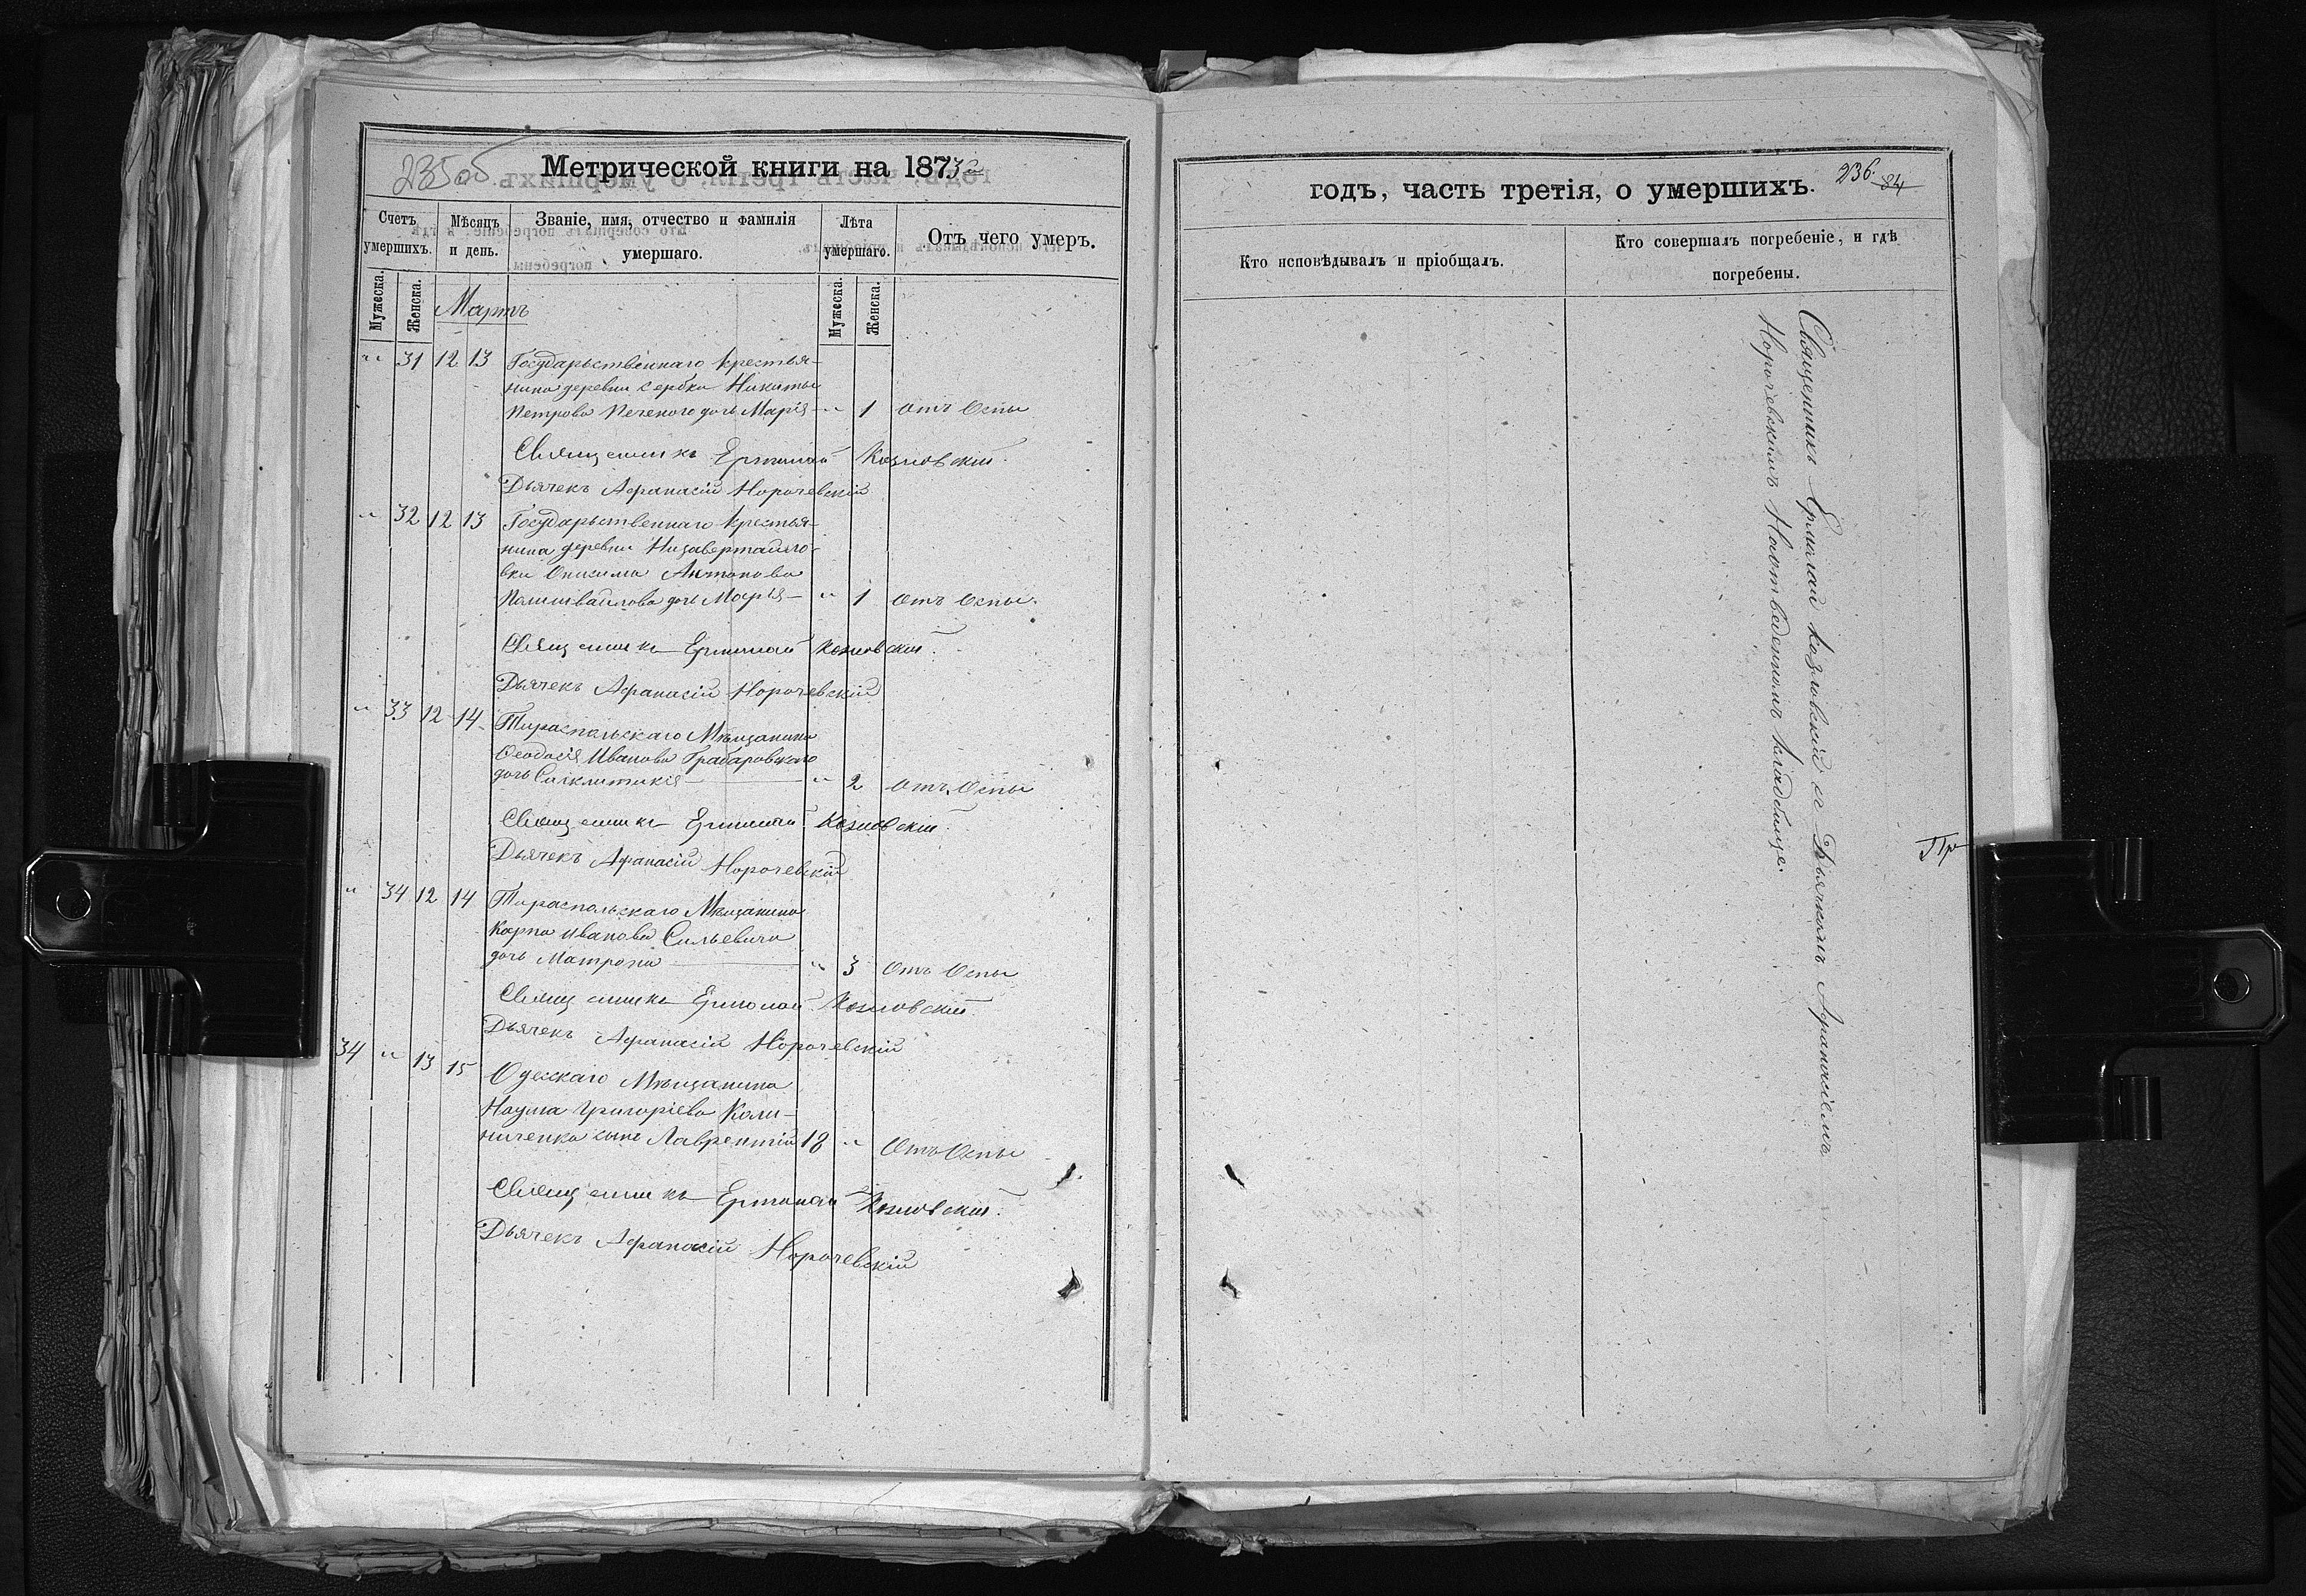 235 об
Метрической книги на 1873й
Счетъ умершихъ.
Мѣсяцъ и день.
Званіе, имя, отчество и фамилія умершаго.
Лѣта умершаго.
Отъ чего умеръ.
Мужеска.
Женска.
Мужеска.
Женска.
Мартъ
" 31 12 13 Государьственнаго крестья-
нина деревни Сербки Никиты
Петрова Печеного дочь Марія — " 1 отъ Оспы
Священникъ Ермолай Козловскій.
Дьячекъ Афанасій Норочевскій
" 32 12 13 Государьственнаго крестья-
нина деревни
вки Онисима Антонова
дочь Марія — " 1 отъ Оспы.
Священникъ Ермолай Козловскій.
Дьячекъ Афанасій Норочевскій
" 33 12 14 Тираспольскаго Мѣщанина
Ѳеодосія Иванова Грабаровскаго
дочь Сиклитикія — " 2 отъ Оспы
Священникъ Ермолай Козловскій.
Дьячекъ Афанасій Норочевскій
" 34 12 14 Тираспольскаго Мѣщанина
Карпа Иванова Сильевича
дочь Матрона — " 3 Отъ Оспы
Священникъ Ермолай Козловскій.
Дьячекъ Афанасій Норочевскій
34 " 13 15 Одесскаго Мѣщанина
Наума Григоріева Кали-
ниченка сынъ Лаврентій 18 " Отъ Оспы
Священникъ Ермолай Козловскій.
Дьячекъ Афанасій Норочевскій
годъ, часть третія, о умершихъ.
236.
84
Кто исповѣдывалъ и пріобщалъ.
Кто совершалъ погребеніе, и гдѣ
погребены.
Священникъ Ермолай Козловскій съ Дьячкомъ Афанасіемъ
Норочевскимъ На отведенномъ кладбище.